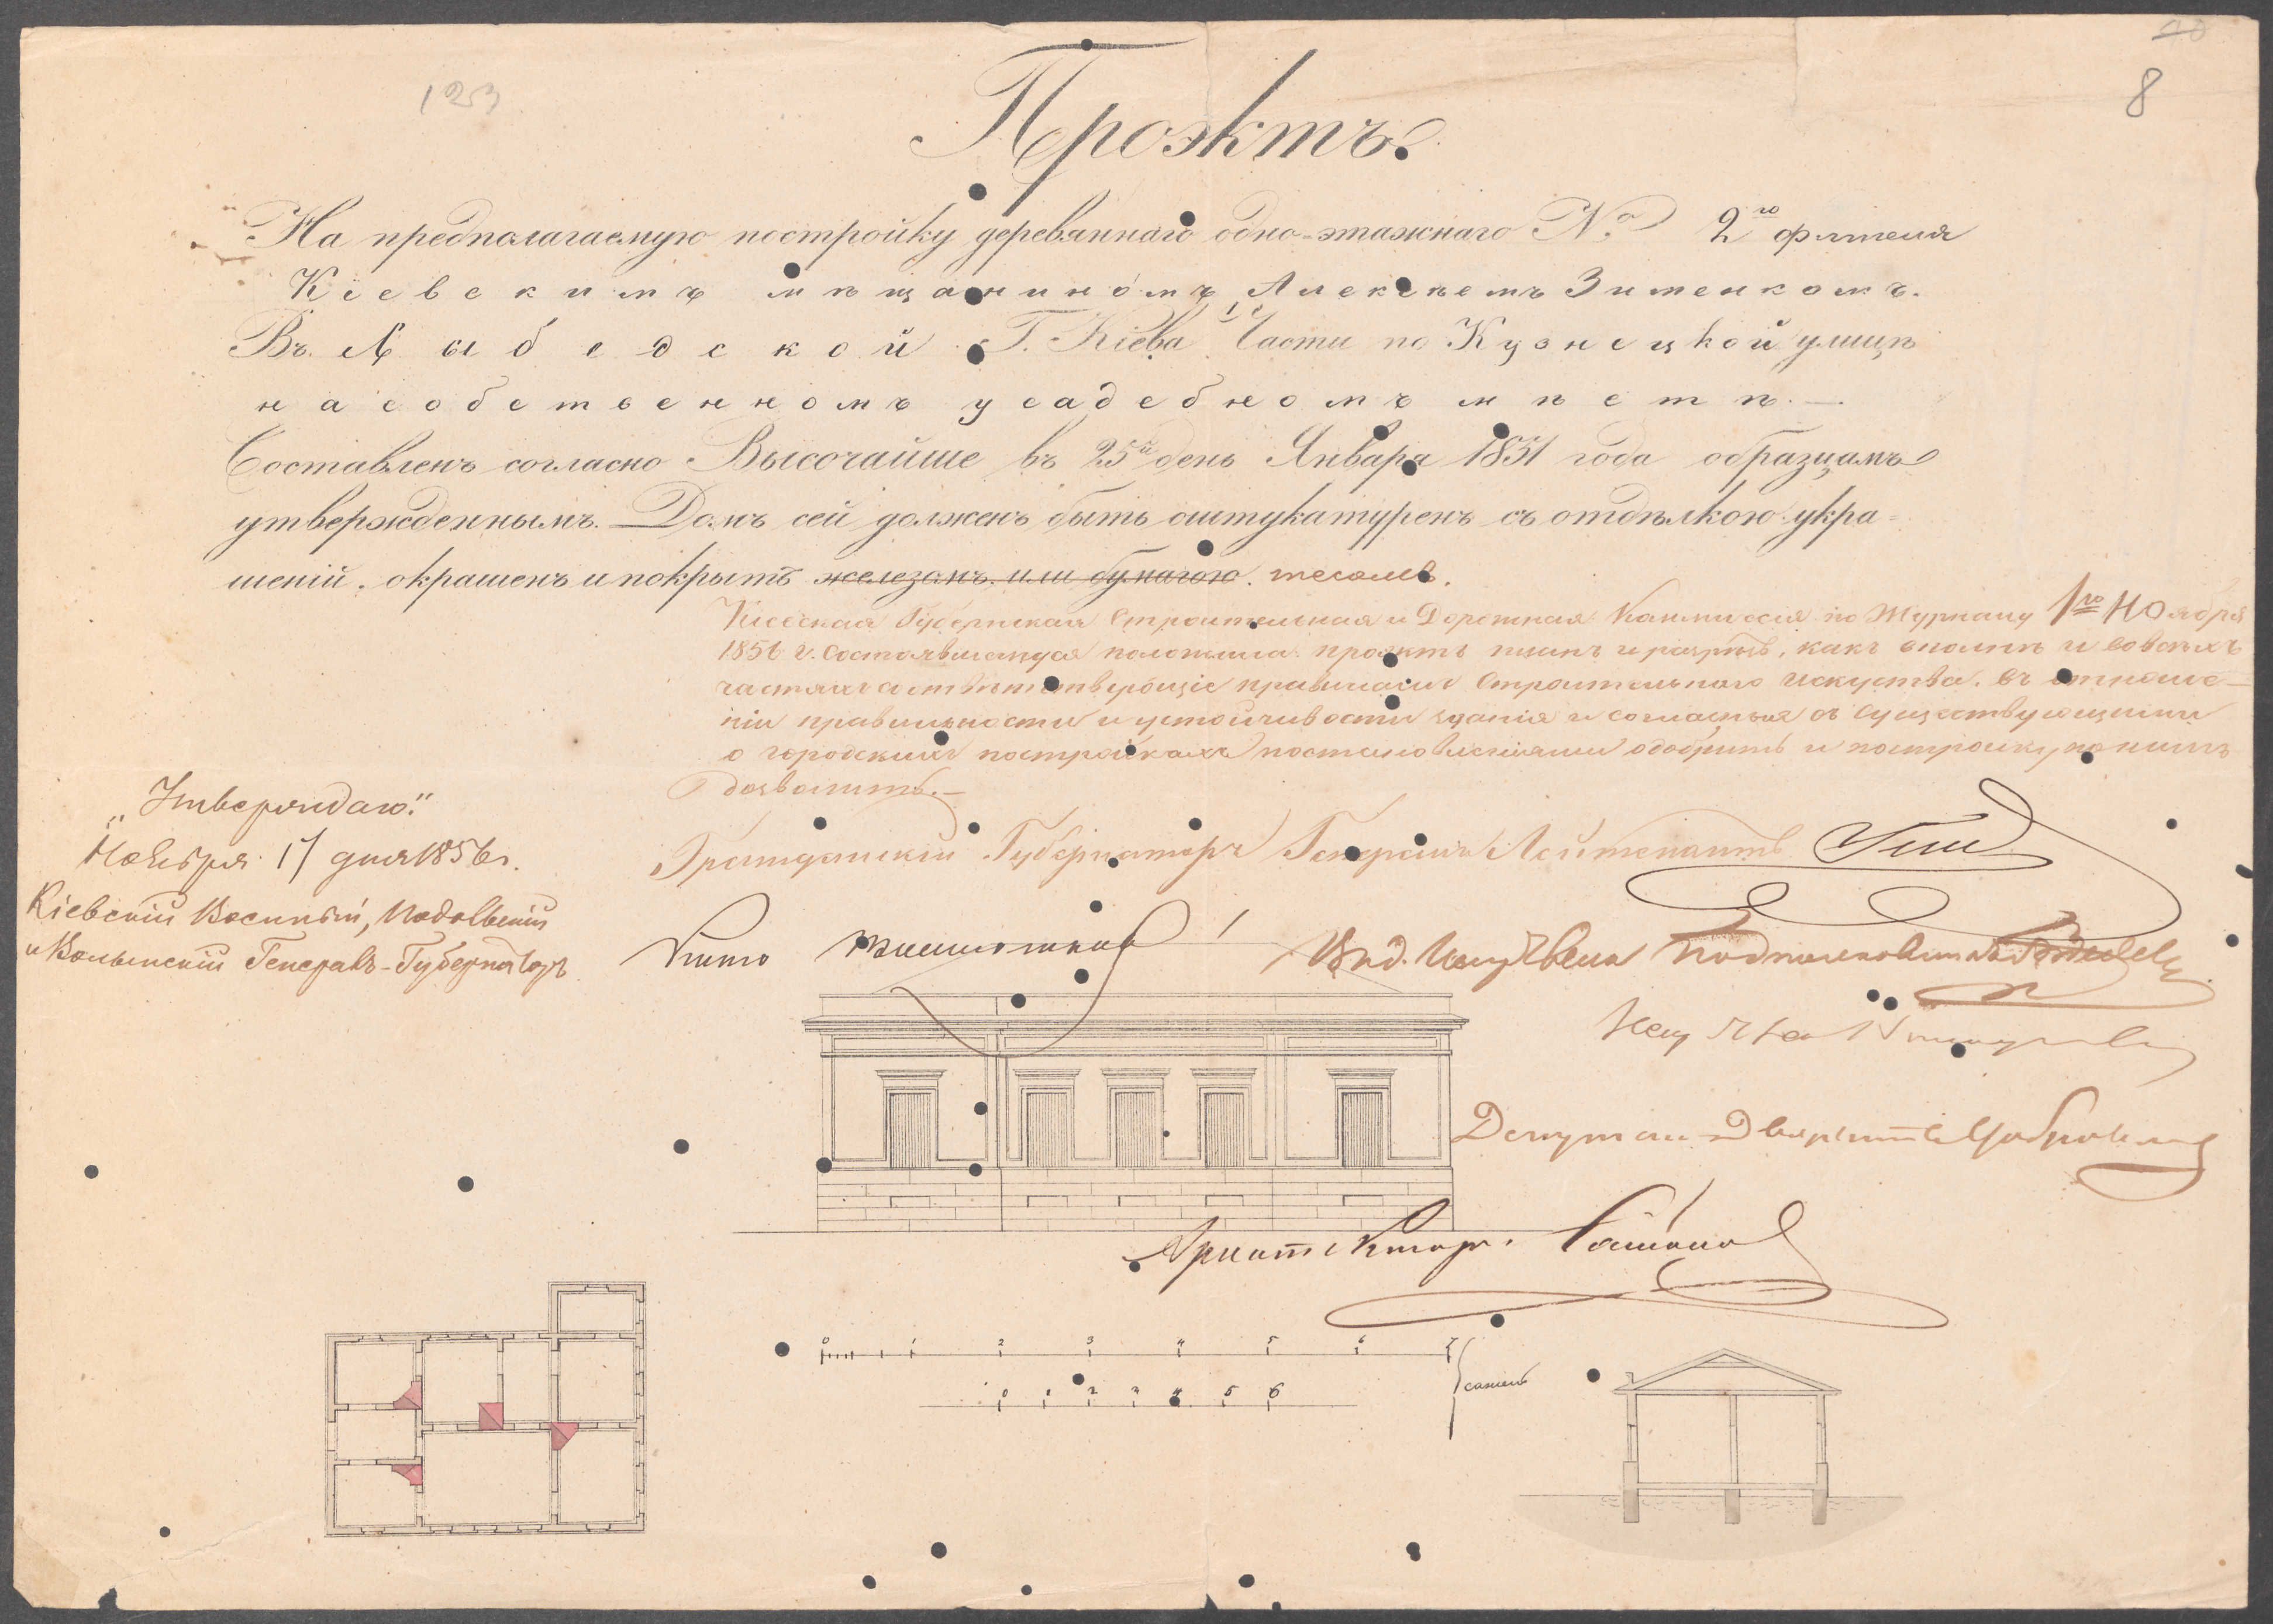 123
40
8
Проэктъ.
На предполагаемую постройку деревяннаго одно-этажнаго № 2го флигеля
Кіевскимъ мѣщаниномъ Алексѣемъ Зименкомъ.
Въ Лыбедской Г. Кіева части по Кузнецкой улицѣ
на собственномъ усадебномъ мѣстѣ.—
Составленъ согласно Высочайше въ 25й день Января 1851 года образцамъ
утвержденнымъ. Домъ сей долженъ быть оштукатуренъ съ отдѣлкою укра-
шеній. окрашенъ и покрытъ железомъ или бумагою. тесомъ.
Кіевская Губернская Строительная и Дорожная Коммиссія по Журналу 1го Ноября
1856 г. состоявшемуся положила: проэктъ планъ и разрѣзъ, какъ вполнѣ и во всѣхъ
частяхъ соответствующіе правиламъ Строительнаго искуства. въ отноше-
ніи правильности и устойчивости зданія и согласныя съ существующими
о городскихъ постройкахъ постановленіями одобрить и постройку по нимъ
дозволить.—
„Утверждаю."
Ноября 17 дня 1856 г.
Кіевскій Военный, Подольскій
и Волынскій Генералъ-Губернаторъ
Гражданскій Губернаторъ Генералъ Лейтенантъ
Подполковникъ
Депутатъ Дворянства
Архитекторъ
0 1 2 3 4 5 6 7
0 1 2 3 4 5 6
сажень